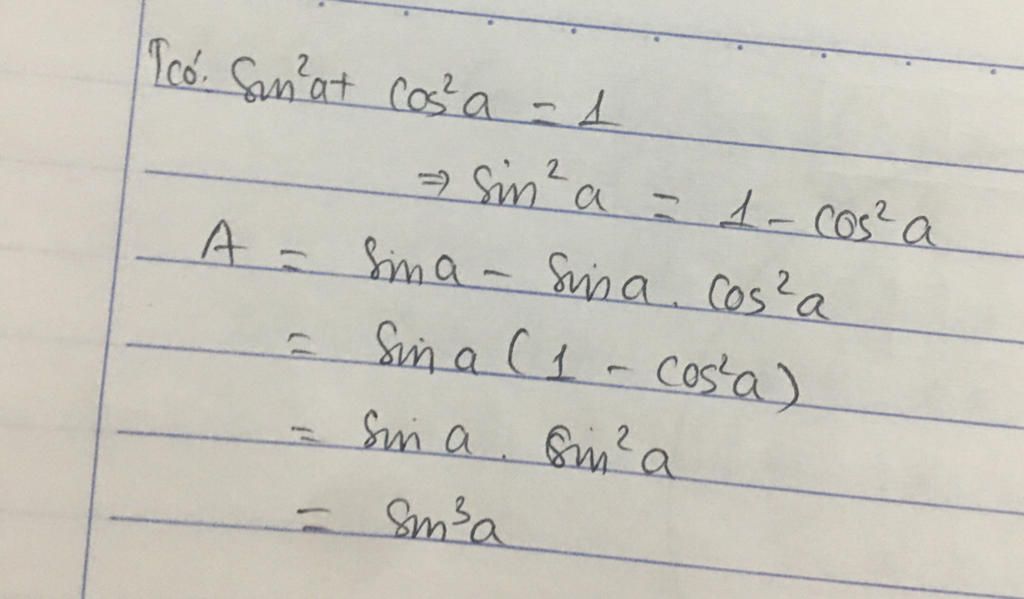 Tcó: Sin²a + cos²a = 1
⇒ Sin²a = 1 - cos²a
A = Sina - Sina . cos²a
= Sin a (1 - cos²a)
= Sin a . Sin²a
= Sin³a